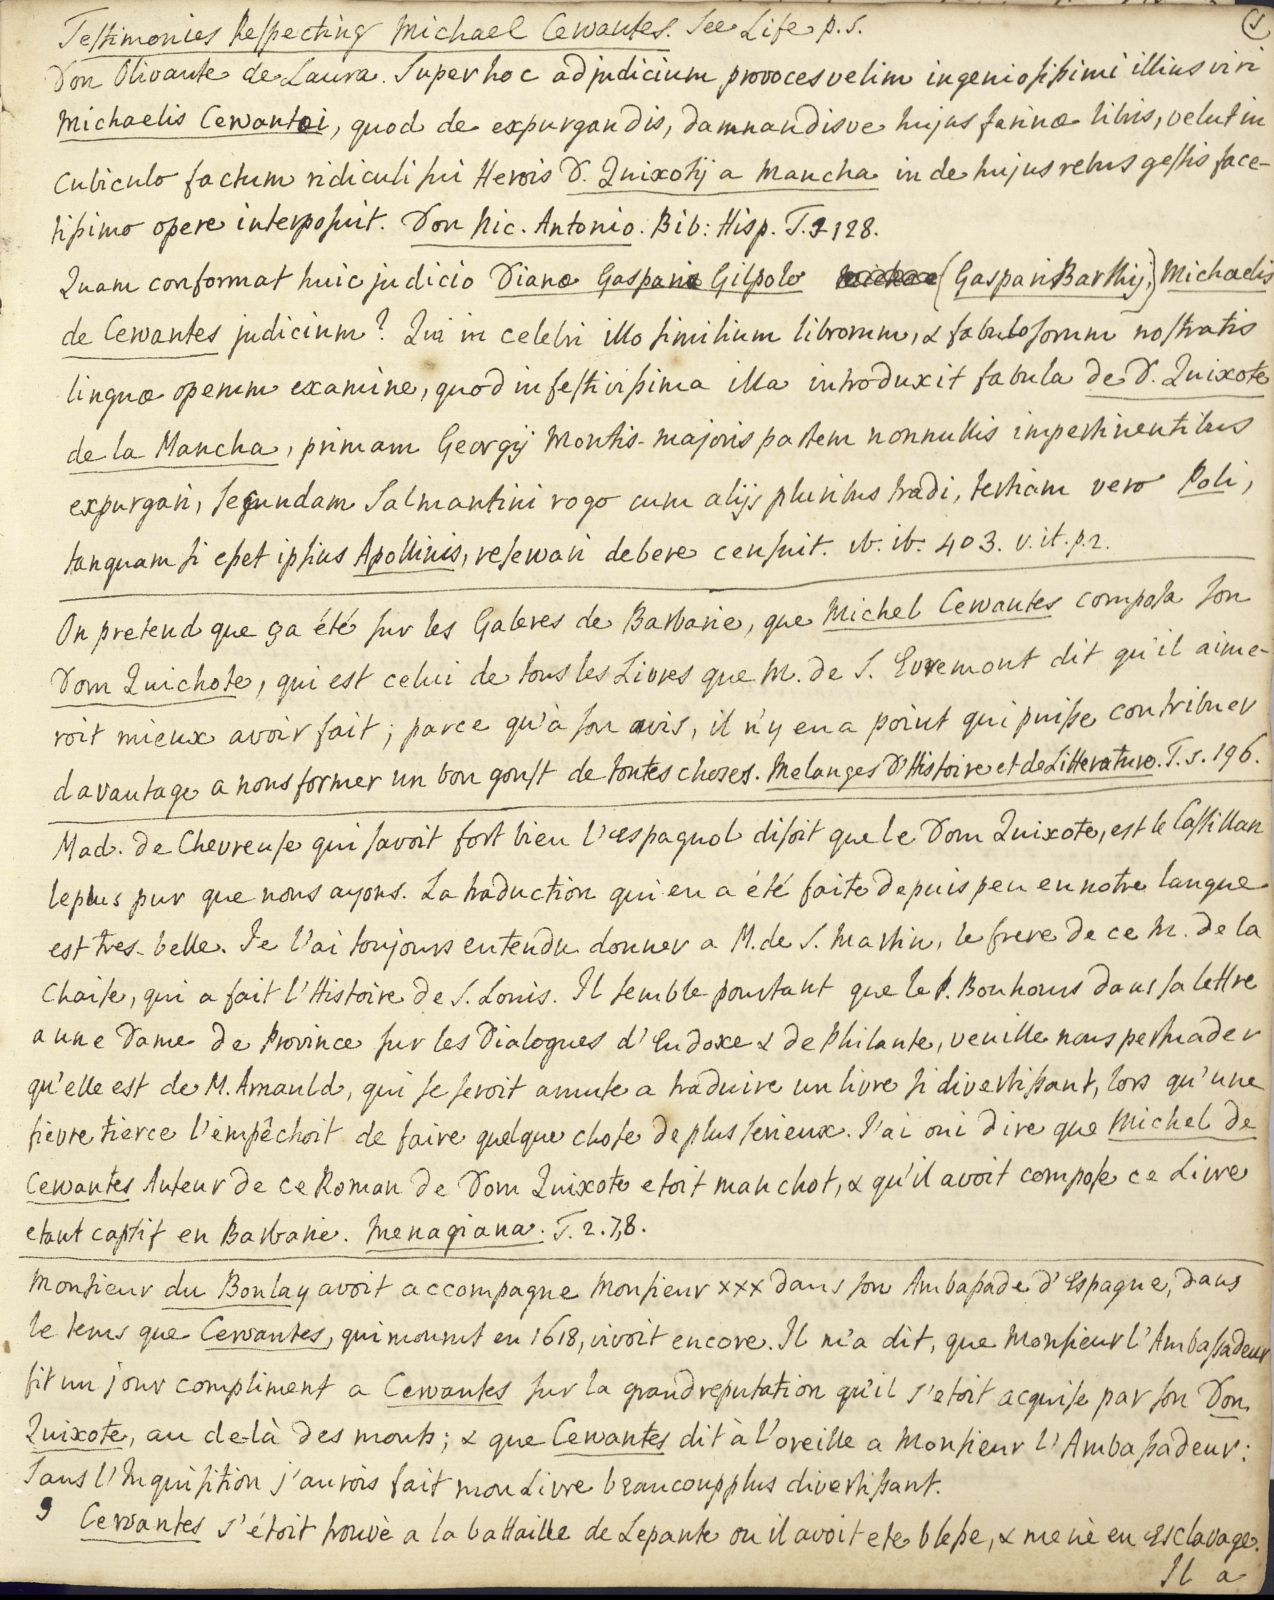 (1)
Testimonies Respecting Michael Cervantes. See Life p. 5.
Don Olivante de Laura. Super hoc ad judicium provoces velim ingeniosissimi illius viri
Michaelis Cervantei, quod de expurgandis, damnandisve hujus farinæ libris, velut in
cubiculo factum ridiculi sui Herois D. Quixotij a Mancha in de hujus rebus gestis face-
tissimo opere interposuit. Don Nic. Antonio. Bib: Hisp. T. 2 128.
Quam conformat huic judicio Dianæ Gasparis Gilpolo (Gasparis Barthij,) Michaelis
de Cervantes judicium? Qui in celebri illo similium librorum, & fabulosorum nostratis
linguæ operum examine, quod in festivissima illa introduxit fabula de D. Quixote
de la Mancha, primam Georgij Montis-majoris partem nonnullis impertinentibus
expurgari, secundam Salmantini rogo cum alijs pluribus tradi, tertiam vero Poli,
tanquam si esset ipsius Apollinis, reservari debere censuit. ib. ib. 403. v. it. p. 2.
On pretend que ça été sur les Galeres de Barbarie, que Michel Cervantes composa son
Dom Quichote, qui est celui de tous les Livres que M. de S. Evremont dit qu'il aime-
roit mieux avoir fait; parce qu'à son avis, il n'y en a point qui puisse contribuer
davantage a nous former un bon goust de toutes choses. Melanges D'Histoire et de Litterature. T. 1. 196.
Mad. de Chevreuse qui savoit fort bien l'espagnol disoit que le Dom Quixote, est le Castillan
le plus pur que nous ayons. La traduction qui en a été faite depuis peu en notre langue
est tres-belle. Je l'ai toujours entendu donner a M. de S. Martin, le frere de ce M. de la
Chaise, qui a fait l'Histoire de S. Louis. Il semble pourtant que le P. Bouhours dans sa lettre
a une Dame de Province sur les Dialogues d'Eudoxe & de Philante, veuille nous persuader
qu'elle est de M. Arnauld, qui se seroit amuse a traduire un livre si divertissant, lors qu'une
fievre tierce l'empêchoit de faire quelque chose de plus serieux. J'ai oui dire que Michel de
Cervantes Auteur de ce Roman de Dom Quixote etoit manchot, & qu'il avoit compose ce Livre
etant captif en Barbarie. Menagiana. T. 2. 7,8.
Monsieur du Boulay avoit accompagne Monsieur xxx dans son Ambassade d'Espagne, dans
le tems que Cervantes, qui mourut en 1618, vivoit encore. Il m'a dit, que Monsieur l'Ambassadeur
fit un jour compliment a Cervantes sur la grand reputation qu'il s'etoit acquise par son Don
Quixote, au de-là des monts; & que Cervantes dit à l'oreille a Monsieur l'Ambassadeur:
Sans l'Inquisition j'aurois fait mon Livre beaucoup plus divertissant.
Cervantes s'étoit trouvè a la battaille de Lepante ou il avoit ete blesse, & menè en Esclavage.
Il a